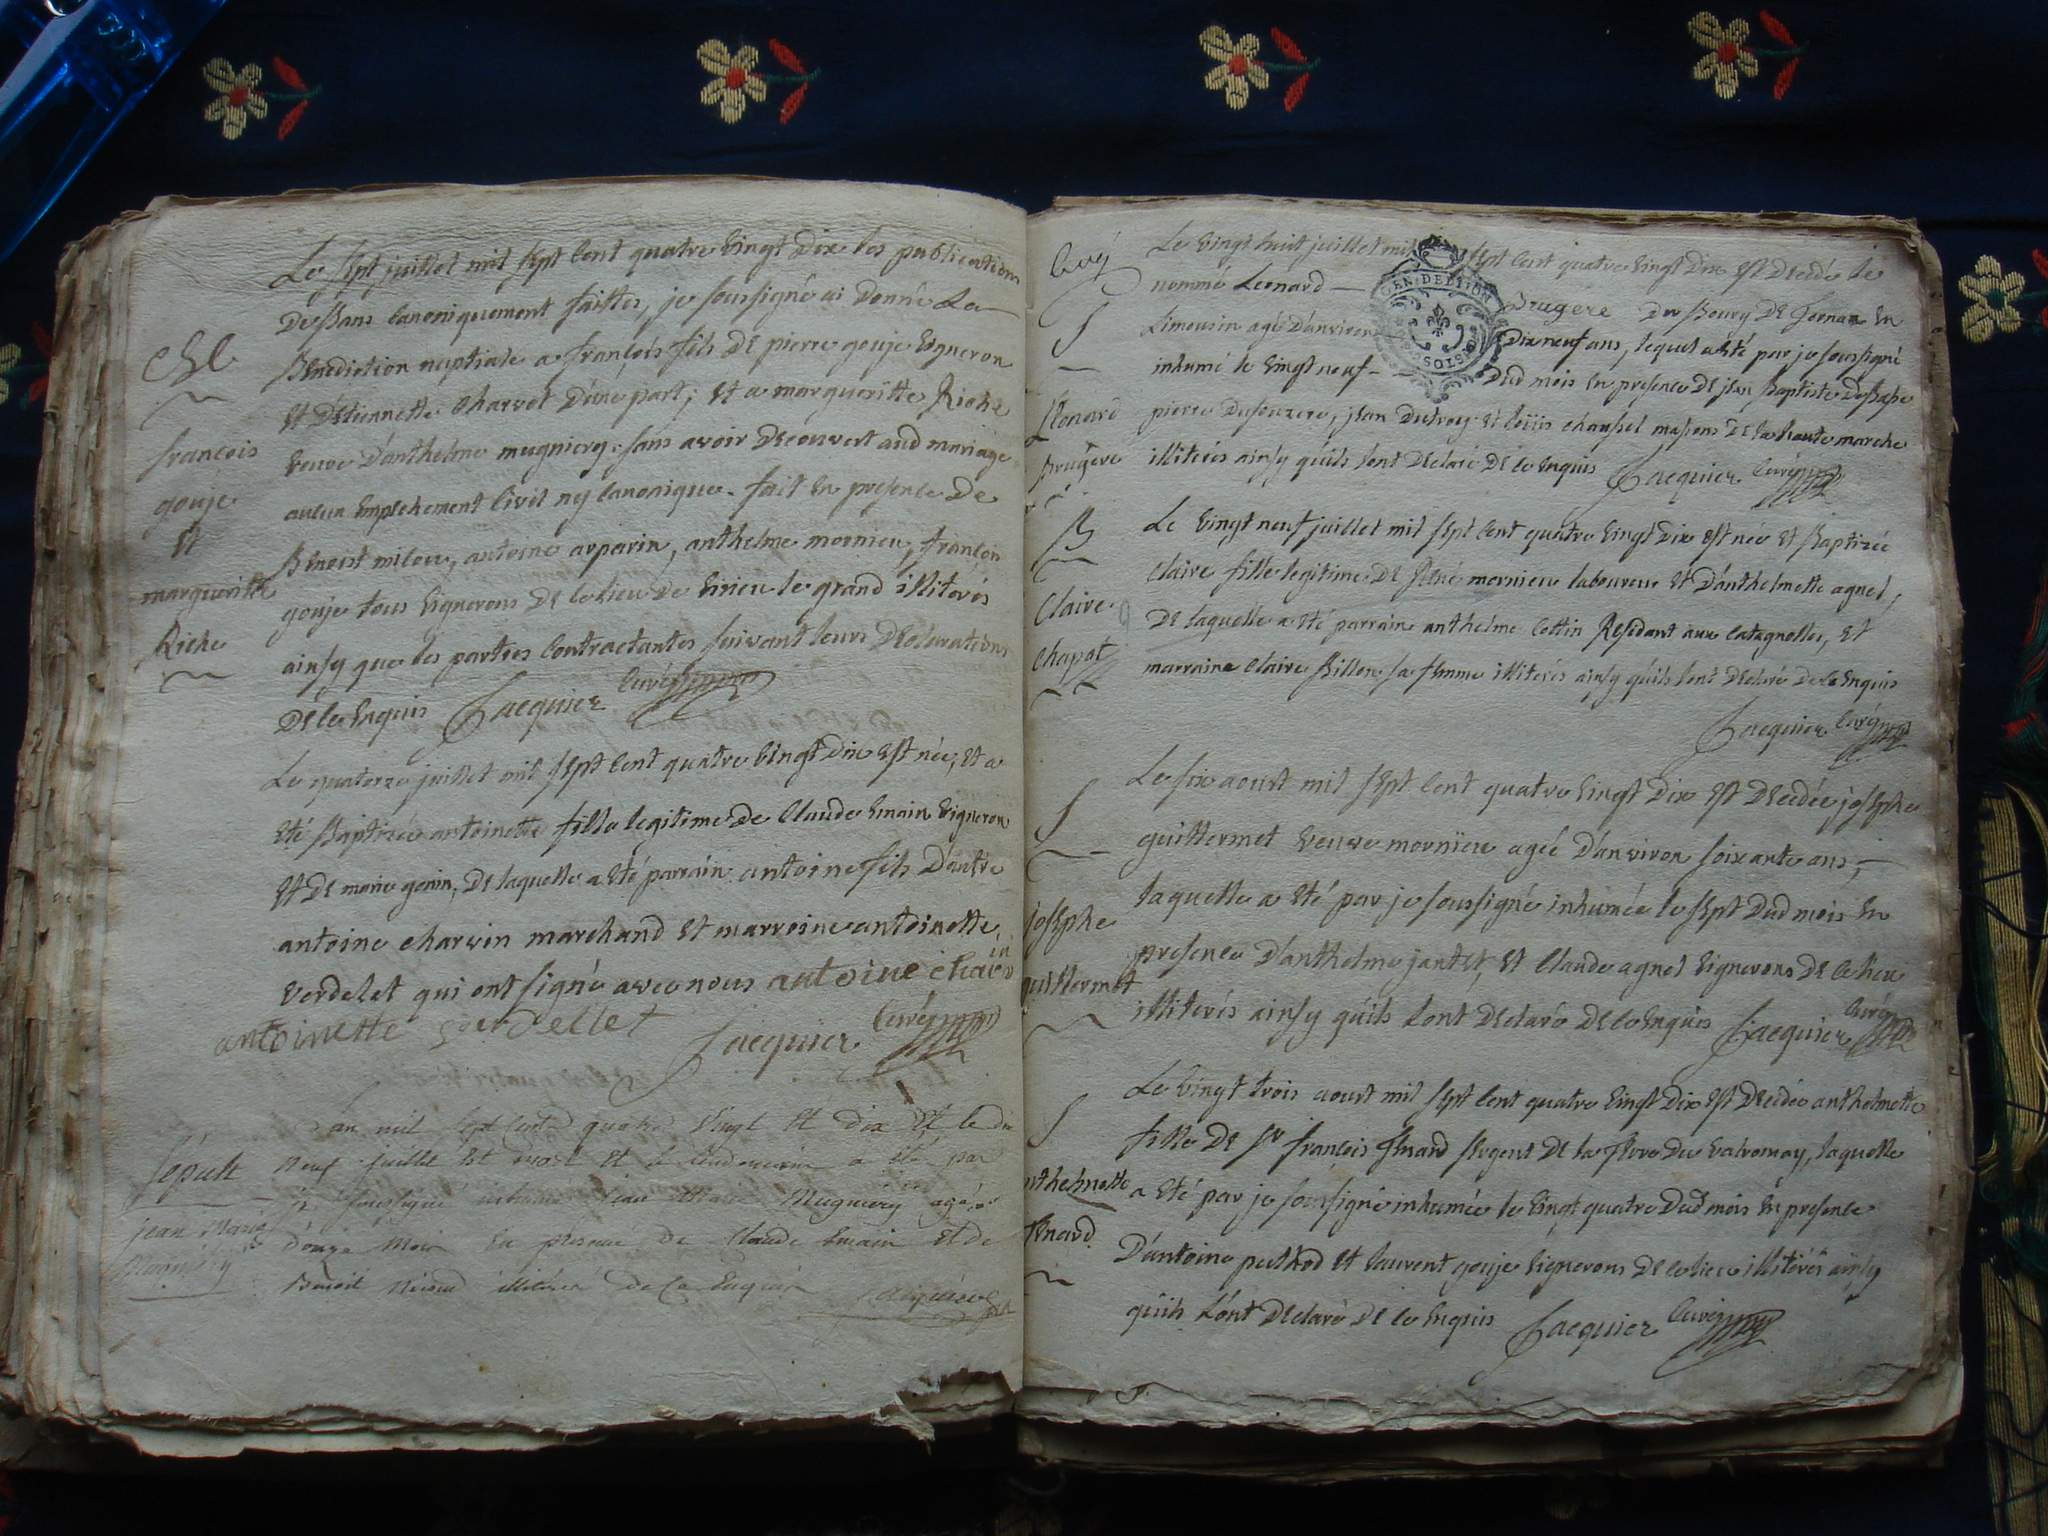 Le sept juillet mil sept cent quatre vingt dix les publications
De Bans canoniquement faittes, je soussigné ai donné La
Benediction nuptiale a françois fils de pierre gouje vigneron
et D'Etiennette Charvet D'une part; et a margueritte Riche
veuve D'anthelme mugniery. sans avoir Decouvert aud mariage
aucun empechement civil ny canonique. fait en presence De
Benoist milou, antoine arparin, anthelme mornieu, françois
gouje tous vignerons de ce lieu de virieu le grand illiterés
ainsy que les parties contractantes suivant leurs Declarations
De ce enquis Jacquier curé
françois
gouje
et
margueritte
Riche
Le quatorze juillet mil sept cent quatre vingt dix est née, et a
eté Baptizée antoinette fille legitime de Claude emain vigneron
et de marie genin, de laquelle a eté parrain antoine fils D'autre
antoine charvin marchand et marraine antoinette
verdelet qui ont signé avec nous antoine charvin
antoinette verdellet Jacquier curé
L'an mil sept cent quatre vingt et dix et le dix
neuf juillet est mort et le lendemain a été par
je soussigné inhumé jean marie Mugniery agé
d'onze mois en presence de Claude emain et de
Benoit illiteré de ce enquis Jacquier
sepult
jean Marie
Mugniery
Le vingt huit juillet mil sept cent quatre vingt dix est Decedé le
nommé Leonard Brugere Du Bourg De en
Limousin agé D'anviron Dix neuf ans, lequel a eté par je soussigné
inhumé le vingt neuf Dud mois en presence De jean Baptiste
pierre jean et Louis chaussel masons De la haute marche
illiterés ainsy qu'ils l'ont Declaré De ce enquis Jacquier curé
GEN. DE DIJON
S
Leonard
Brugere
Le vingt neuf juillet mil sept cent quatre vingt dix est née et Baptizée
Claire fille legitime De René mornieu laboureur et D'anthelmette agnel,
De laquelle a eté parrain anthelme Cottin Residant aux catagnolles, et
marraine Claire Billon sa femme illiterés ainsy qu'ils l'ont Declaré de ce enquis
Jacquier curé
B
Claire
Chapot
Le six aoust mil sept cent quatre vingt Dix est Decedée josephe
guillermet veuve mornieu agée D'anviron soixante ans,
laquelle a eté par je soussigné inhumée le sept Dud mois en
presence D'anthelme jantet, et Claude agnel vignerons De ce lieu
illiterés ainsy qu'ils l'ont Declaré De ce enquis Jacquier curé
S
josephe
guillermet
Le vingt trois aoust mil sept cent quatre vingt Dix est Decedée anthelmette
fille De Sr françois Henard sergent De la Terre Du valromay, laquelle
a eté par je soussigné inhumée le vingt quatre Dud mois en presence
D'antoine puthod et laurent gouje vignerons De ce lieu illiterés ainsy
qu'ils l'ont Declaré De ce enquis Jacquier curé
S
anthelmette
henard